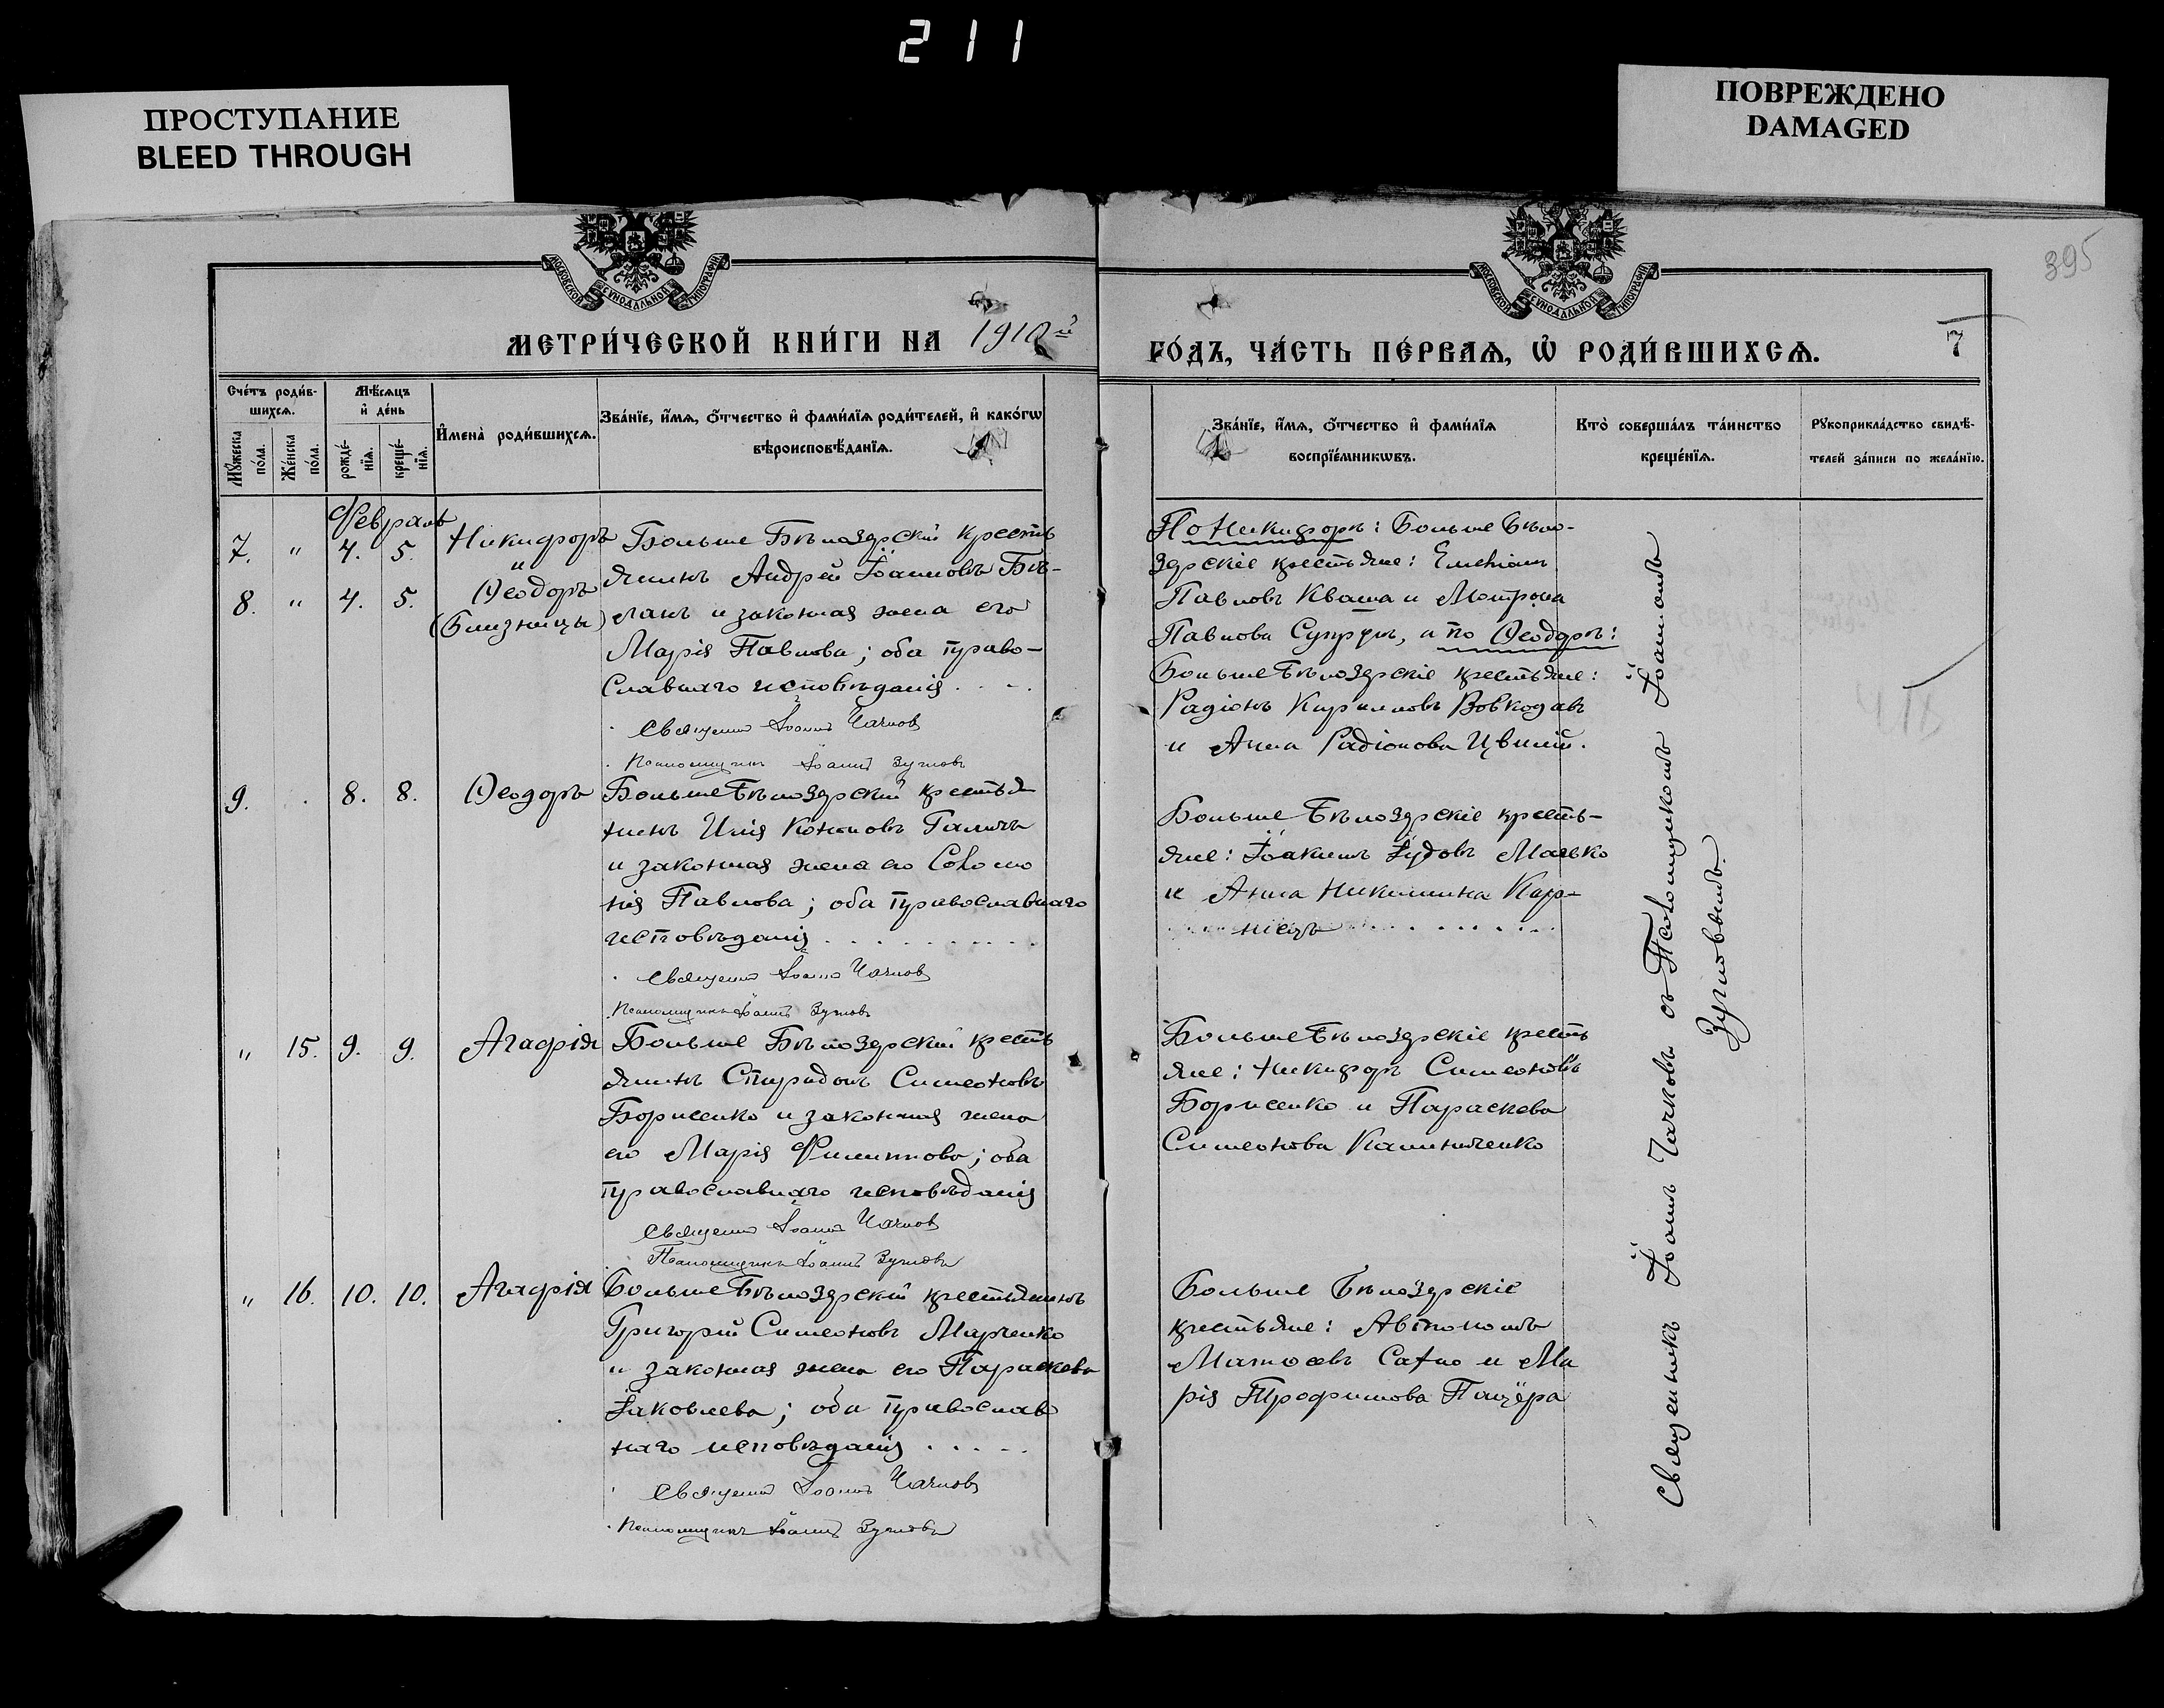 211
ПРОСТУПАНИЕ
BLEED THROUGH
ПОВРЕЖДЕНО
DAMAGED
395
МОСКОВСКОЙ СѴНОДАЛЬНОЙ ТИПОГРАФІИ
МОСКОВСКОЙ СѴНОДАЛЬНОЙ ТИПОГРАФІИ
МЕТРИ́ЧЕСКОЙ КНИ́ГИ НА 1910й
ГО́ДЪ, ЧА́СТЬ ПЕ́РВАѦ, Ѽ РОДИ́ВШИХСѦ.
7
Сче́тъ роди́в-
шихсѧ.
Мꙋ́жеска по́ла.
Же́нска по́ла.
Мѣ́сѧцъ
и҆ де́нь
рожде́-
нїѧ.
креще́-
нїѧ.
И҆мена̀ роди́вшихсѧ.
Зва́нїе, и҆́мѧ, ѻ҆́тчество и҆ фами́лїѧ роди́телей, и҆ како́гѡ
вѣроисповѣ́данїѧ.
Зва́нїе, и҆́мѧ, ѻ҆́тчество и҆ фами́лїѧ
воспрїе́мникѡвъ.
Кто̀ соверша́лъ та́инство
креще́нїѧ.
Рꙋкоприкла́дство свидѣ́-
телей за́писи по жела́нїю.
Февраль
7. " 4. 5. Никифоръ
"
8. " 4. 5. Ѳеодоръ
(Близнецы)
Больше Бѣлозерскій кресть
янинъ Андрей Іоанновъ Бѣ-
ланъ и законная жена его
Марія Павлова; оба право-
славнаго исповѣданія . . . .
Священн Іоаннъ Чачковъ
Псаломщикъ Іоаннъ Зугновъ
По Никифорѣ: Больше Бѣло-
зерскіе крестьяне: Емеліанъ
Павловъ Кваша и Матрона
Павлова Супрунъ, а по Ѳеодорѣ:
Больше Бѣлозерскіе крестьяне:
Радіонъ Кирилловъ Вовкодавъ
и Анна Радіонова Цвилій.
9. . 8. 8. Ѳеодоръ
Больше Бѣлозерскій крестья
нинъ Илія Кононовъ Галичъ
и законная жена его Соломо
нія Павлова; оба православнаго
исповѣданія . . . . . . . . . .
Священн Іоаннъ Чачковъ
Псаломщикъ Іоаннъ Зугновъ
Больше Бѣлозерскіе кресть-
яне: Іоакимъ Іудовъ Малько
и Анна Никитина Кар-
ніецъ . . . . . . .
" 15. 9. 9. Агафія
Больше Бѣлозерскій кресть
янинъ Спиридонъ Симеоновъ
Борисенко и законная жена
его Марія Филиппова; оба
православнаго исповѣданія
Священн Іоаннъ Чачковъ
Псаломщикъ Іоаннъ Зугновъ
Больше Бѣлозерскіе кресть
яне: Никифоръ Симеоновъ
Борисенко и Параскева
Симеонова Калиниченко
" 16. 10. 10. Агафія
Больше Бѣлозерскій крестьянинъ
Григорій Симеоновъ Марченко
и законная жена его Параскева
Іаковлева; оба православ
наго исповѣданія . . . . .
Священн Іоаннъ Чачковъ
Псаломщикъ Іоаннъ Зугновъ
Больше Бѣлозерскіе
крестьяне: Автономъ
Матѳеевъ Сахно и Ма
рія Трофимова Пащера
Священникъ Іоаннъ Чачковъ съ Псаломщикомъ Іоанномъ
Зугновымъ.